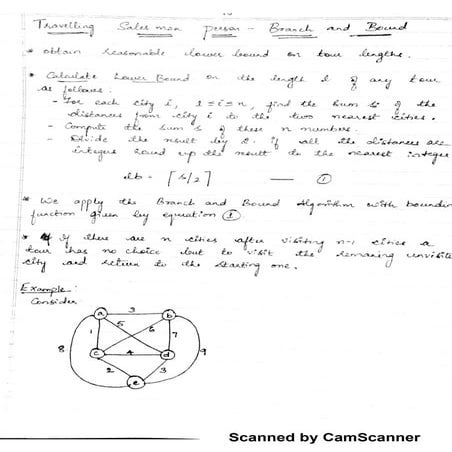 Travelling Sales man person - Branch and Bound
* obtain reasonable lower bound on tour lengths.
* Calculate Lower Bound on the length l of any tour
as follows:
- For each city i, 1≤i≤n, find the sum si of the
distances from city i to the two nearest cities.
- Compute the sum s of these n numbers.
- Divide the result by 2. if all the distances are
integers round up the result to the nearest integer
lb = ⌈s/2⌉ — ①
* We apply the Branch and Bound Algorithm with bounding
function given by equation ①
* If there are n cities after visiting n-1 cities a
tour has no choice but to visit the remaining unvisite
city and return to the starting one.
Example:
Consider
a 3 b
1 5 6 7
8 c 4 d 9
2 3
e
Scanned by CamScanner